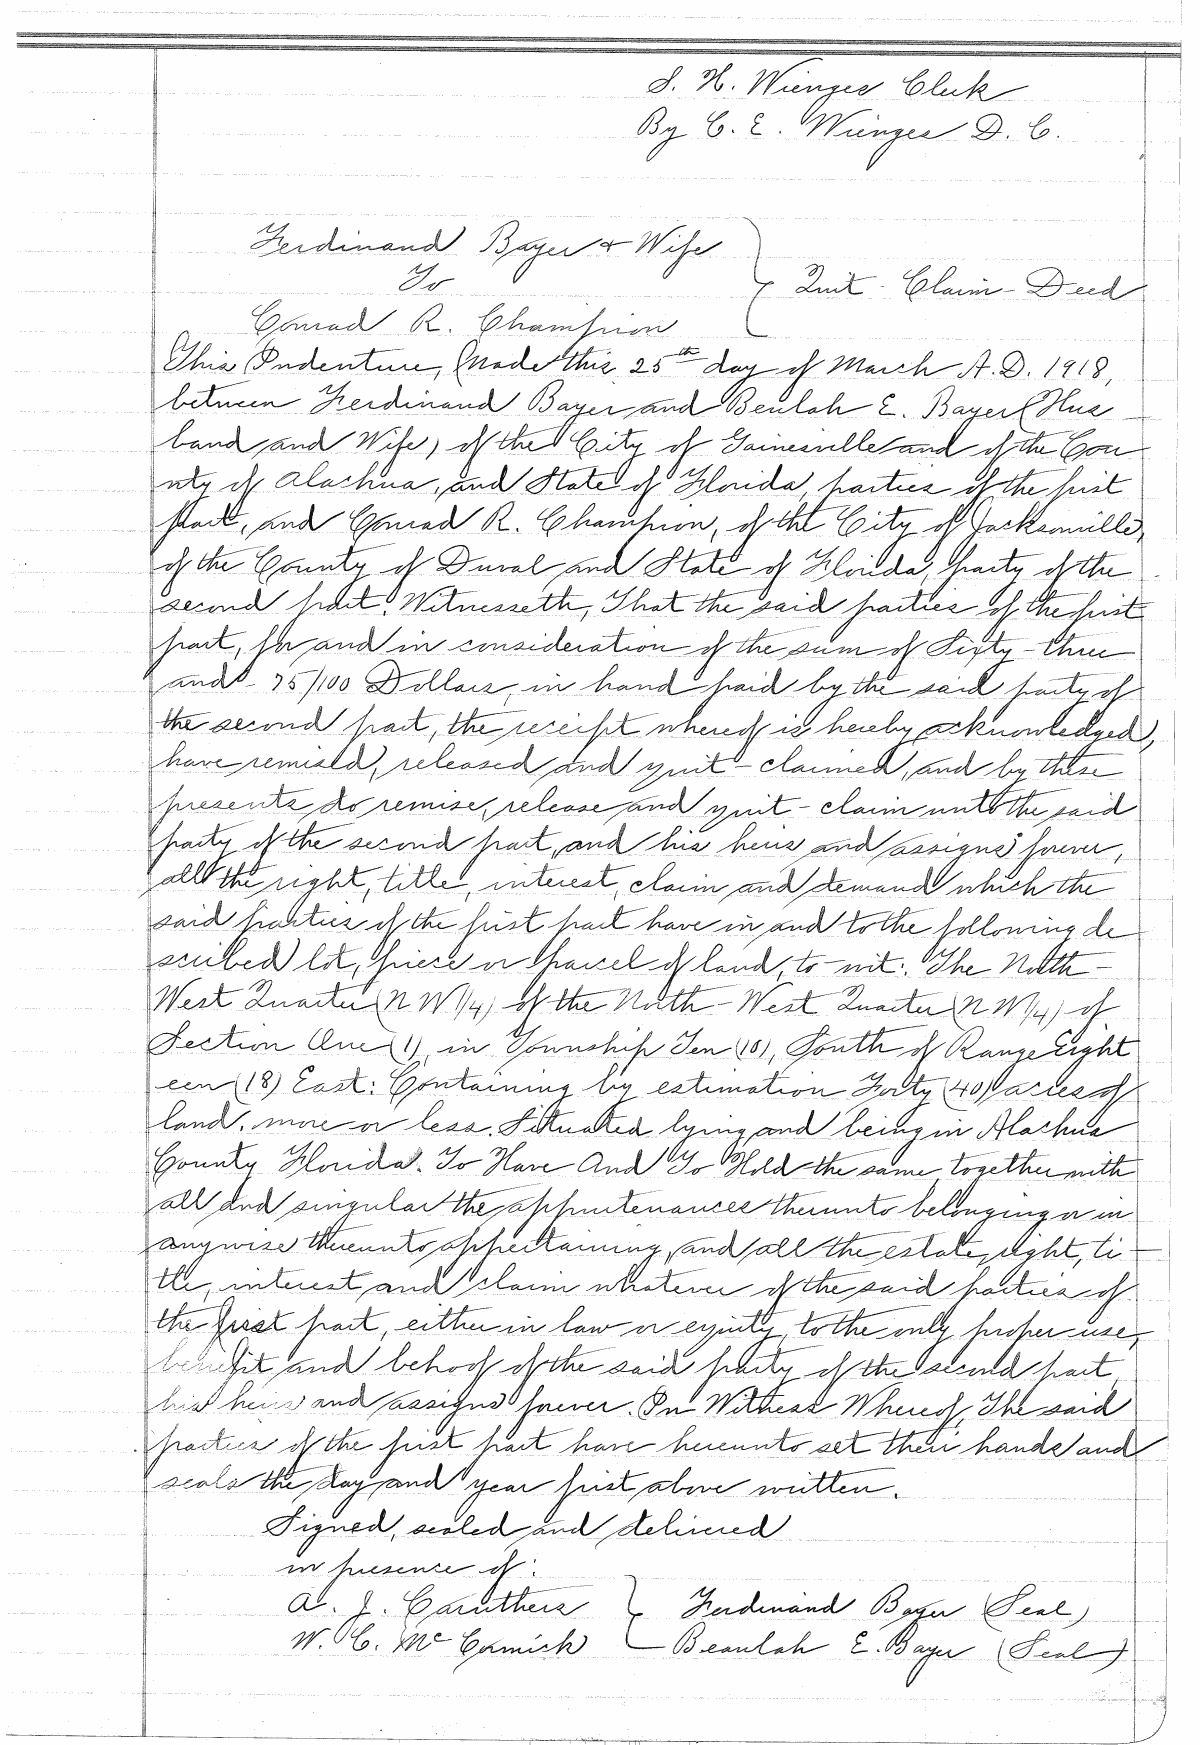 S. H. Wienges Clerk
By C. E. Wienges D. C.
Ferdinand Bayer + Wife
To
Quit - Claim - Deed
Conrad R. Champion
This Indenture, Made this 25th day of March A. D. 1918,
between Ferdinand Bayer and Beulah E. Bayer (Hus
band and Wife) of the City of Gainesville and of the Cou
nty of Alachua, and State of Florida, parties of the first
part, and Conrad R. Champion, of the City of Jacksonville,
of the County of Duval and State of Florida, party of the
second part. Witnesseth, That the said parties of the first
part, for and in consideration of the sum of Sixty - three
and - 75/100 Dollars, in hand paid by the said party of
the second part, the receipt whereof is hereby acknowledged,
have remised, released and quit - claimed, and by these
presents do remise, release and quit - claim unto the said
party of the second part, and his heirs and assigns forever,
all the right, title, interest, claim and demand which the
said parties of the first part have in and to the following de
scribed lot, piece or parcel of land, to-wit: The North -
West Quarter (N W 1/4) of the North - West Quarter (N W 1/4) of
Section One (1), in Township Ten (10), South of Range Eight
een (18) East: Containing by estimation Forty (40) acres of
land, more or less. Situated lying and being in Alachua
County Florida. To Have And To Hold the same together with
all and singular the appurtenances thereunto belonging or in
anywise thereunto appertaining, and all the estate, right, ti -
tle, interest and claim whatever of the said parties of
the first part, either in law or equity, to the only proper use,
benefit and behoof of the said party of the second part,
his heirs and assigns forever. In Witness Whereof, The said
parties of the first part have hereunto set their hands and
seals the day and year first above written.
Signed, sealed and delivered
in presence of:
A. J. Caruthers Ferdinand Bayer (Seal)
W. C. McCormick Beaulah E. Bayer (Seal)